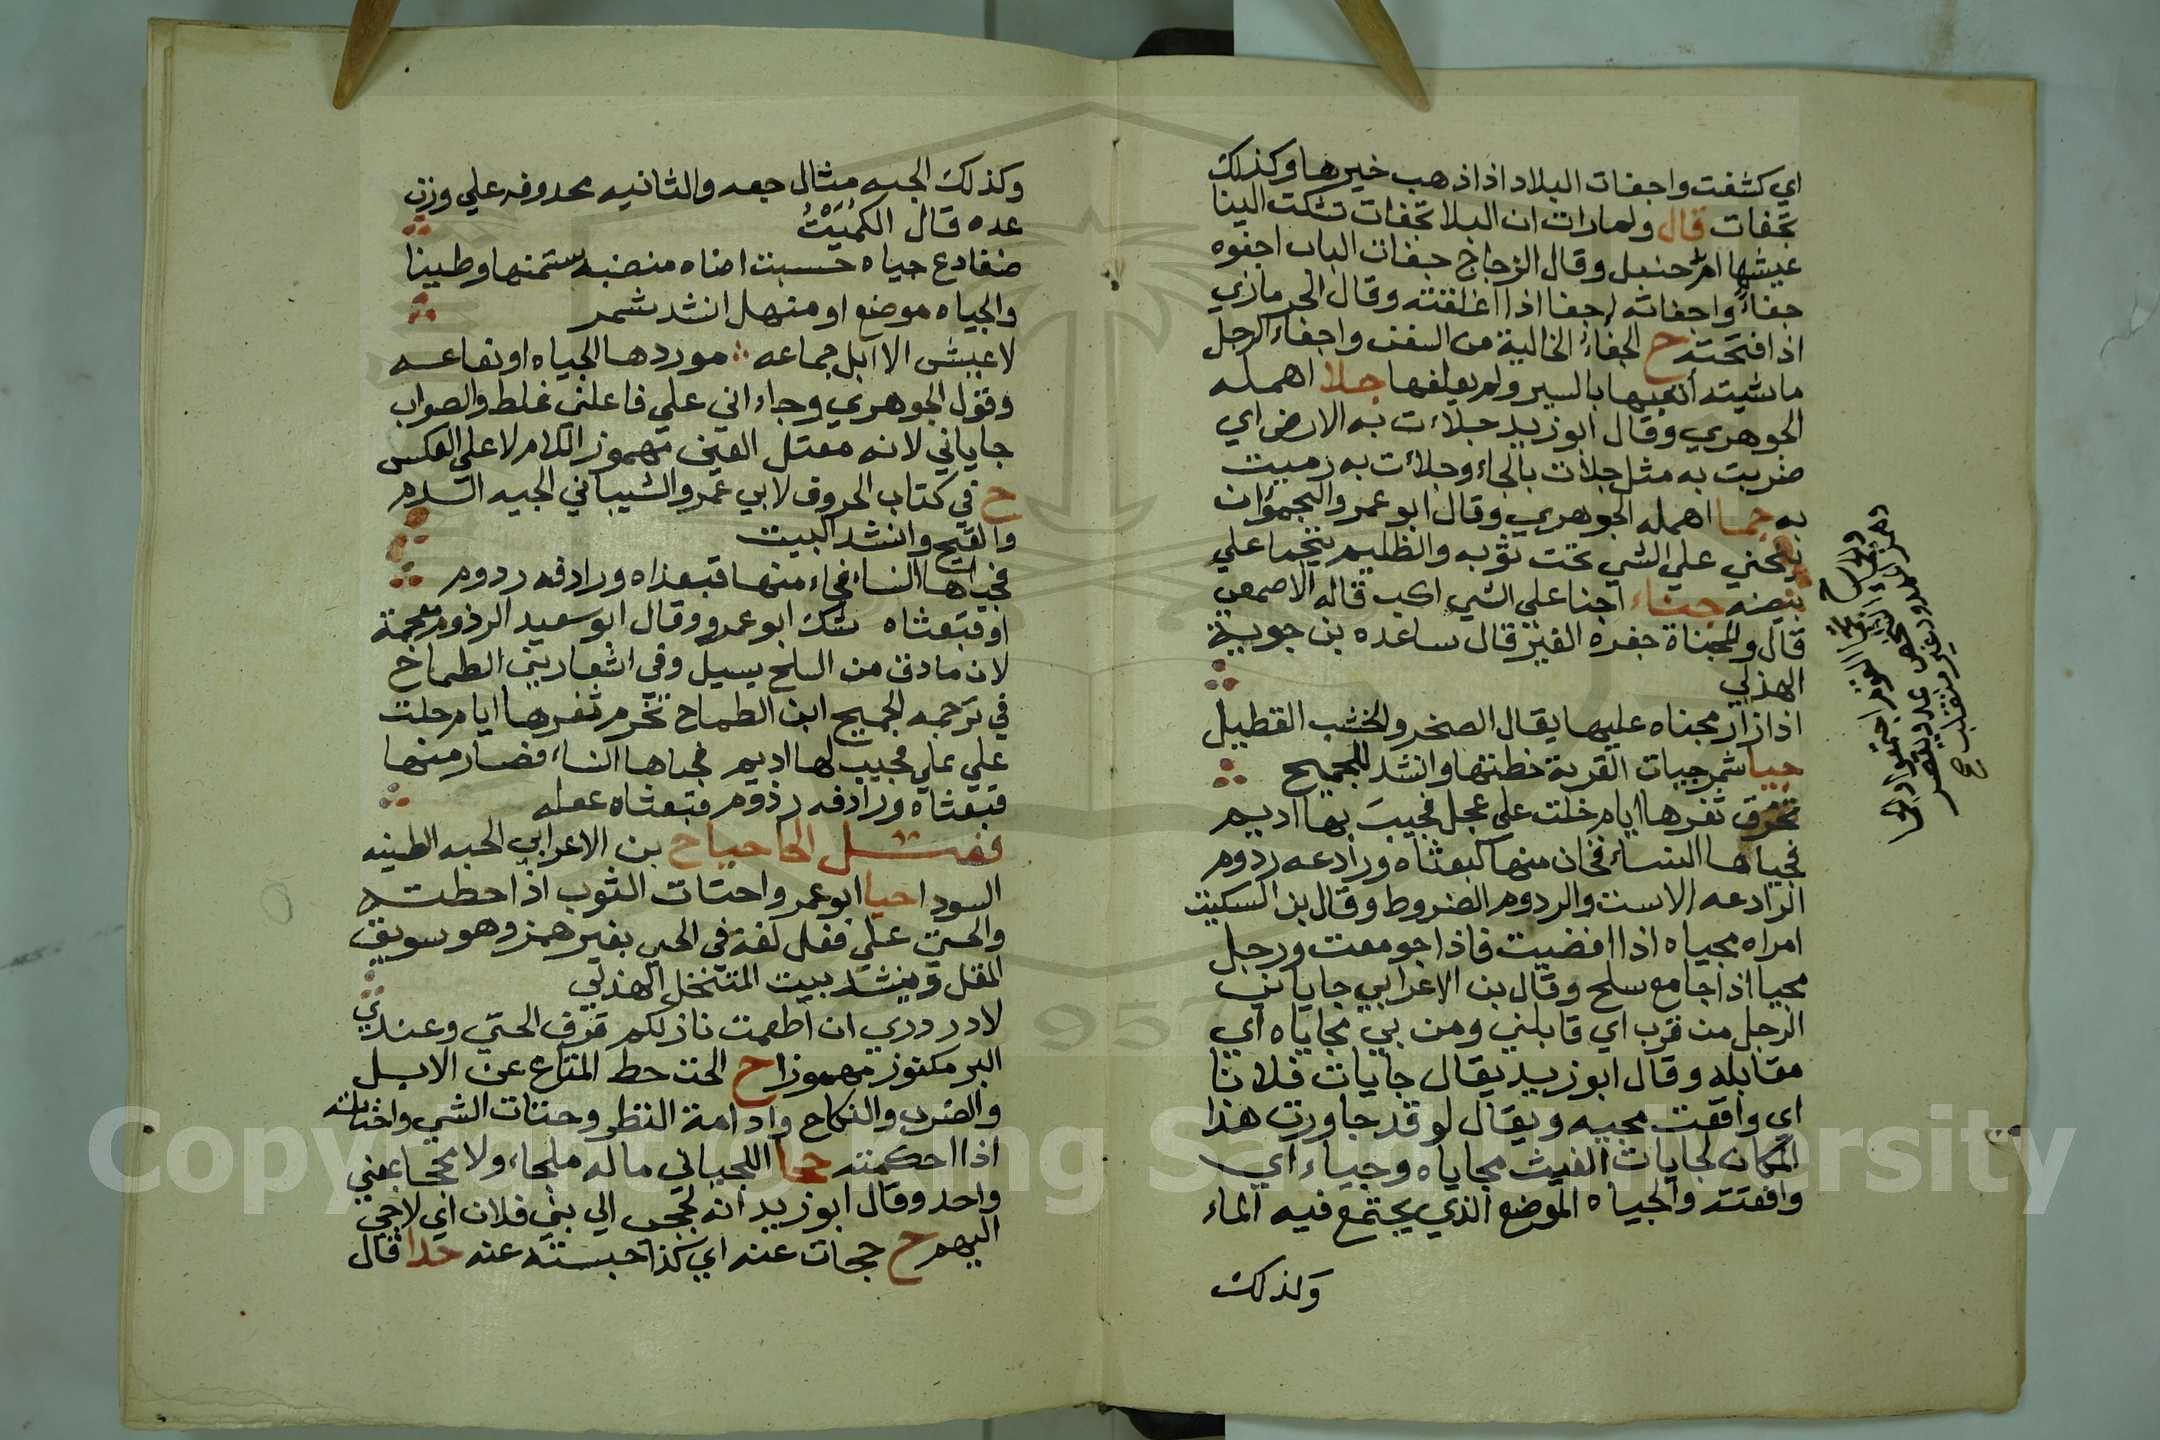 اي كشفت واجفات البلاد اذا ذهب خيرها وكذلك
تجفات قال ولما رات ان البلا تجفات تشكت الينا
عيشها ام حنبل وقال الزجاج جفات الباب اجفوه
جفاءً واجفاته اجفا اذا اغلقته وقال الحرمازي
اذا فتحته ح الجفاءُ الخالية من السفن واجفاء الرجل
ماشيته أتعبها بالسير ولم يعلفها جلا اهمله
الجوهري وقال ابو زيد جلاءت به الارض اي
ضربت به مثل جلات بالجاء وجلأت به رميت
به جما اهمله الجوهري وقال ابو عمرو التجمؤ ان
ينحني علي الشي تحت ثوبه والظليم يتجما علي
بيضه جناء اجنا علي الشي اكب قاله الاصمعي
قال والمجناة حفرة القبر قال ساعده بن جوية
الهذلي
اذا زار مجناه عليها يقال الصخر والخشب القطيل
جيا شمر جيات القربة خطتها وانشد للجميح
تخرق ثفرها ايام خلت علي عجل فجيبَ بها اديم
فجياها النساء فخان منها كبعثاه ورادعه ردوم
الرادعه الاست والردوم الضروط وقال بن السكيت
امراه مجياه اذا افضيت فاذا جومعت ورجل
مجيا اذا جامع سلح وقال بن الاعرابي جاياني
الرجل من قرب اي قابلني ومن بي مجاياه أي
مقابله وقال ابو زيد يقال جايات فلانا
اي وافقت مجيه ويقال لو قد جاورت هذا
المكان لجايات الغيث مجاياه وجياء اي
وافقته والجياه الموضع الذي يجتمع فيه الماء
وكذلك
وكذلك الجيه مثال جعه والثانيه محدوفه علي وزن
عده قال الكُمَيْتُ
ضفادع جياه حسبت اضاه منضبه ستمنها وطينا
والجياه موضع او منهل انشد شمر
لا عيش الا ابل جماعه موردها الجياه او نعاعه
وقول الجوهري وجاءاني علي فاعلني غلط والصواب
جاياني لانه معتل العين مهموز اللام لا علي العكس
ح في كتاب الحروف لابي عمرو الشيباني الجيه الدم
والقيح وانشد البيت
فجياها النساء فجاء منها قبعذاه ورادفه ردوم
او قبعثاه شك ابو عمرو وقال ابو سعيد الرذوم معجمة
لان ما دق من السلح يسيل وفي اشعار بني الطماح
في ترجمه الجميح ابن الطماح تخرم ثفرها ايام حلت
علي علي فجيب لها اديم فجياها النساء فصار منها
قبعثاه ورادفه رذوم قبعثاه عفله
فصل الحا حياح بن الاعرابي الحبه الطينه
السودا حيا ابو عمرو احتات الثوب اذا حطته
والحتي علي فعل لغة في الحي بغير همز وهو سويق
المقل وينشد بيت المتنخل الهذلي
لا در دري ان اطعمت نازلكم قرف الحتي وعندي
البر مكنوز مهموزا ح الحت حط المتاع عن الابل
والضرب والنكاح وادامة النظر وحتات الشي واحتاته
اذا احكمته حجا اللحياني ماله ملجاء ولا محجا بمعني
واحد وقال ابو زيد انه لحجي الي بني فلان اي لاجي
اليهم ح حجات عنه اي كذا حبسته عنه حدا قال
Copyright © King Saud University
957